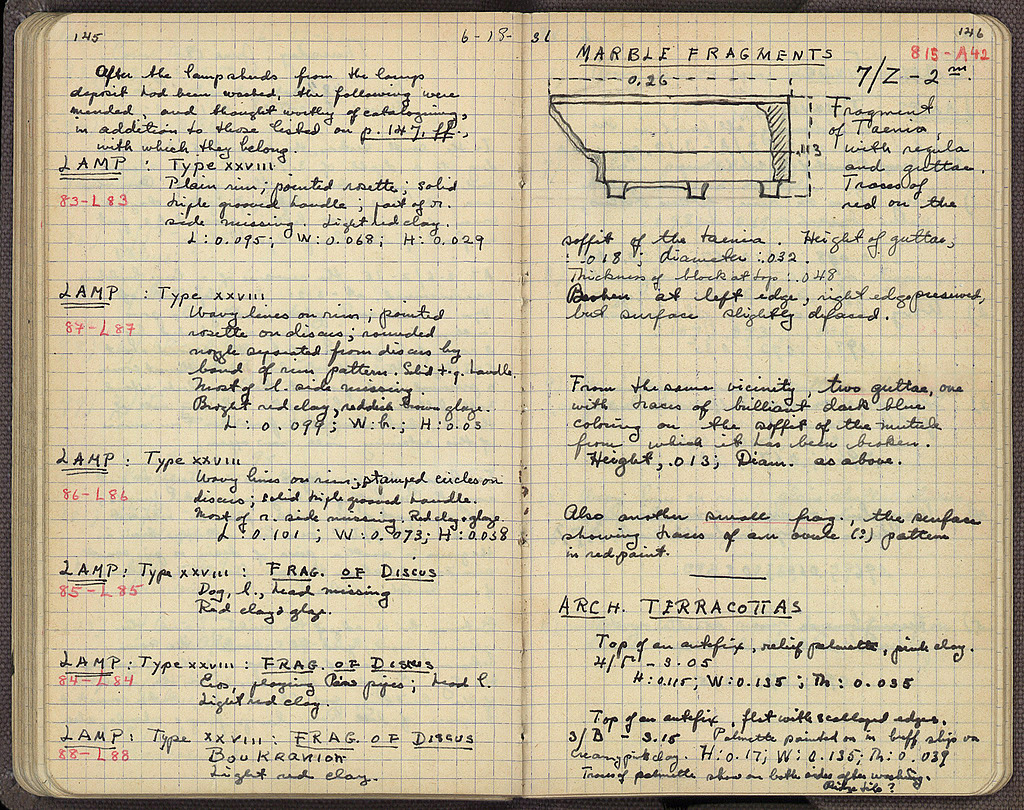 145
6-18-31
After the lampsherds from the lamps
deposit had been washed, the following were
mended, and thought worthy of cataloguing,
in addition to those listed on p. 147, ff.,
with which they belong.
LAMP : Type XXVIII
Plain rim; pointed rosette; solid
83-L83 triple grooved handle; part of r.
side missing. Light red clay.
L: 0.095; W: 0.068; H: 0.029
LAMP : Type XXVIII
Wavy lines on rim; pointed
87-L87 rosette on discus; rounded
nozzle separated from discus by
band of rim pattern. Solid t.g. handle.
Most of l. side missing
Bright red clay, reddish brown glaze.
L: 0.099; W: ; H: 0.03
LAMP : Type XXVIII
Wavy lines on rim; stamped circles on
86-L86 discus; solid triple grooved handle.
Most of r. side missing. Red clay & glaze.
L: 0.101 ; W: 0.073; H: 0.038
LAMP : Type XXVIII : FRAG. OF DISCUS
85-L85 Dog, l., head missing
Red clay & glaze.
LAMP : Type XXVIII : FRAG. OF DISCUS
84-L84 Eros, playing Pan pipes; head l.
Light red clay.
LAMP : Type XXVIII : FRAG. OF DISCUS
88-L88 Boukranion
Light red clay.
146
MARBLE FRAGMENTS 815-A42
7/Z - 2 m.
0.26
.113
Fragment
of Taenia,
with regula
and guttae.
Traces of
red on the
soffit of the taenia. Height of guttae,
: .018 ; diameter : .032.
Thickness of block at top : .048
Broken at left edge, right edge preserved,
but surface slightly defaced.
From the same vicinity, two guttae, one
with traces of brilliant dark blue
coloring on the soffit of the mutule
from which it has been broken.
Height, .013; Diam. as above.
Also another small frag., the surface
showing traces of an ovule (?) pattern
in red paint.
ARCH. TERRACOTTAS
Top of an antefix, relief palmette, pink clay.
4/Γ - 3.05
H: 0.115; W: 0.135 ; Th: 0.035
Top of an antefix, flat with scalloped edges.
3/B - 3.15 Palmette painted on in buff slip on
creamy pink clay. H: 0.17; W: 0.135; Th: 0.039
Traces of palmette show on both sides after washing.
Ridge tile ?